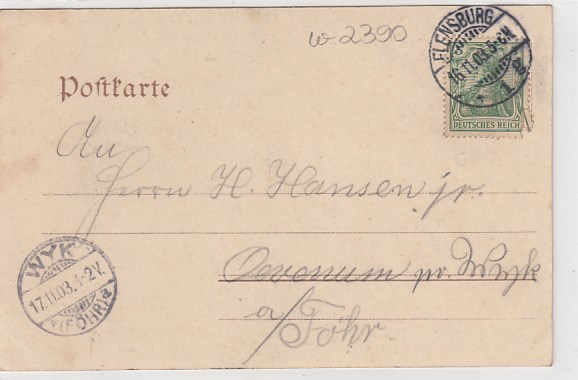 w 2390
FLENSBURG
16.11.03.5-6N.
* 1 g
DEUTSCHES REICH
Postkarte
An
Herrn H. Hansen jr.
Oevenum pr. Wyk
a/Föhr.
WYK
17.11.03.1-2V.
*(FÖHR)a